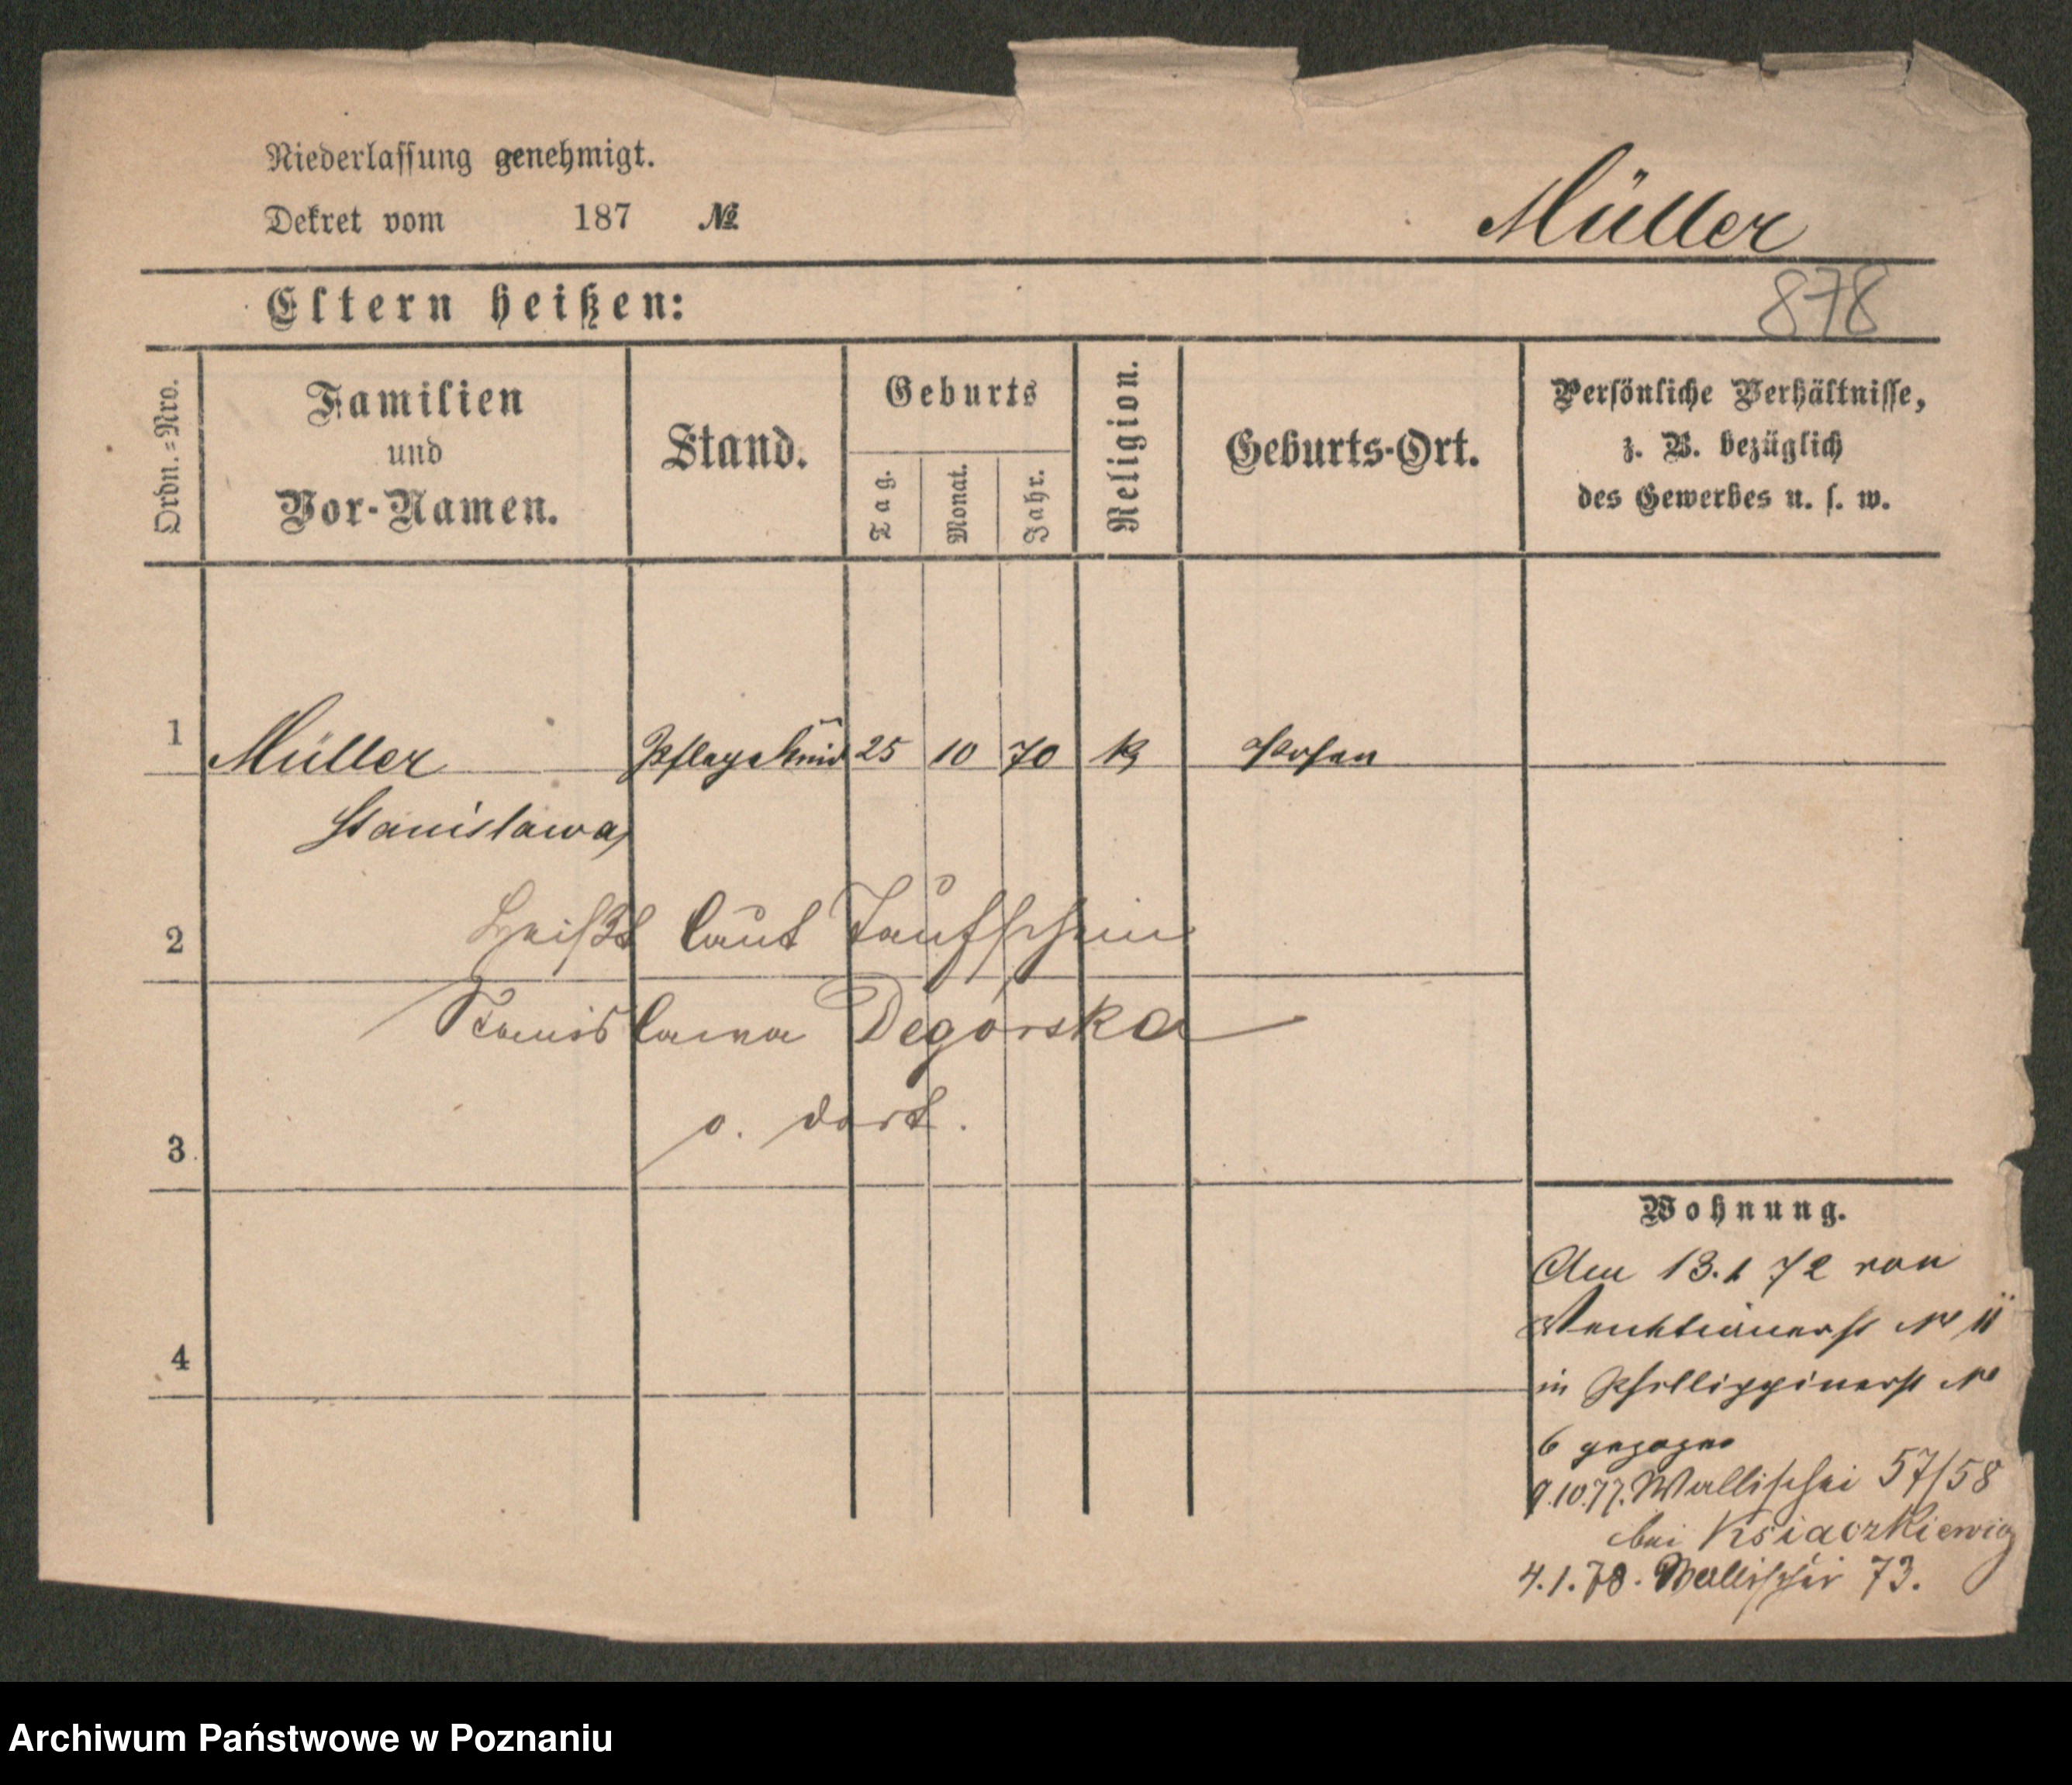 Niederlassung genehmigt.
Dekret vom 187 №
Müller
878
Eltern heißen:
Ordn.=Nro.
Familien
und
Vor-Namen.
Stand.
Geburts
Tag.
Monat.
Jahr.
Religion.
Geburts-Ort.
Persönliche Verhältnisse,
z. B. bezüglich
des Gewerbes u. s. w.
1 Müller Pflegekind 25 10 70 K Posen
Stanislawa
2 heißt laut Taufschein
Stanislawa Degórska
3 o. dort.
4
Wohnung.
Am 13.1 72 von
№ 11
in Phillippinerst №
6 gezogen
9.10.77. Wallischei 57/58
bei Ksiaczkiewicz
4.1.78. Wallischei 73.
Archiwum Państwowe w Poznaniu